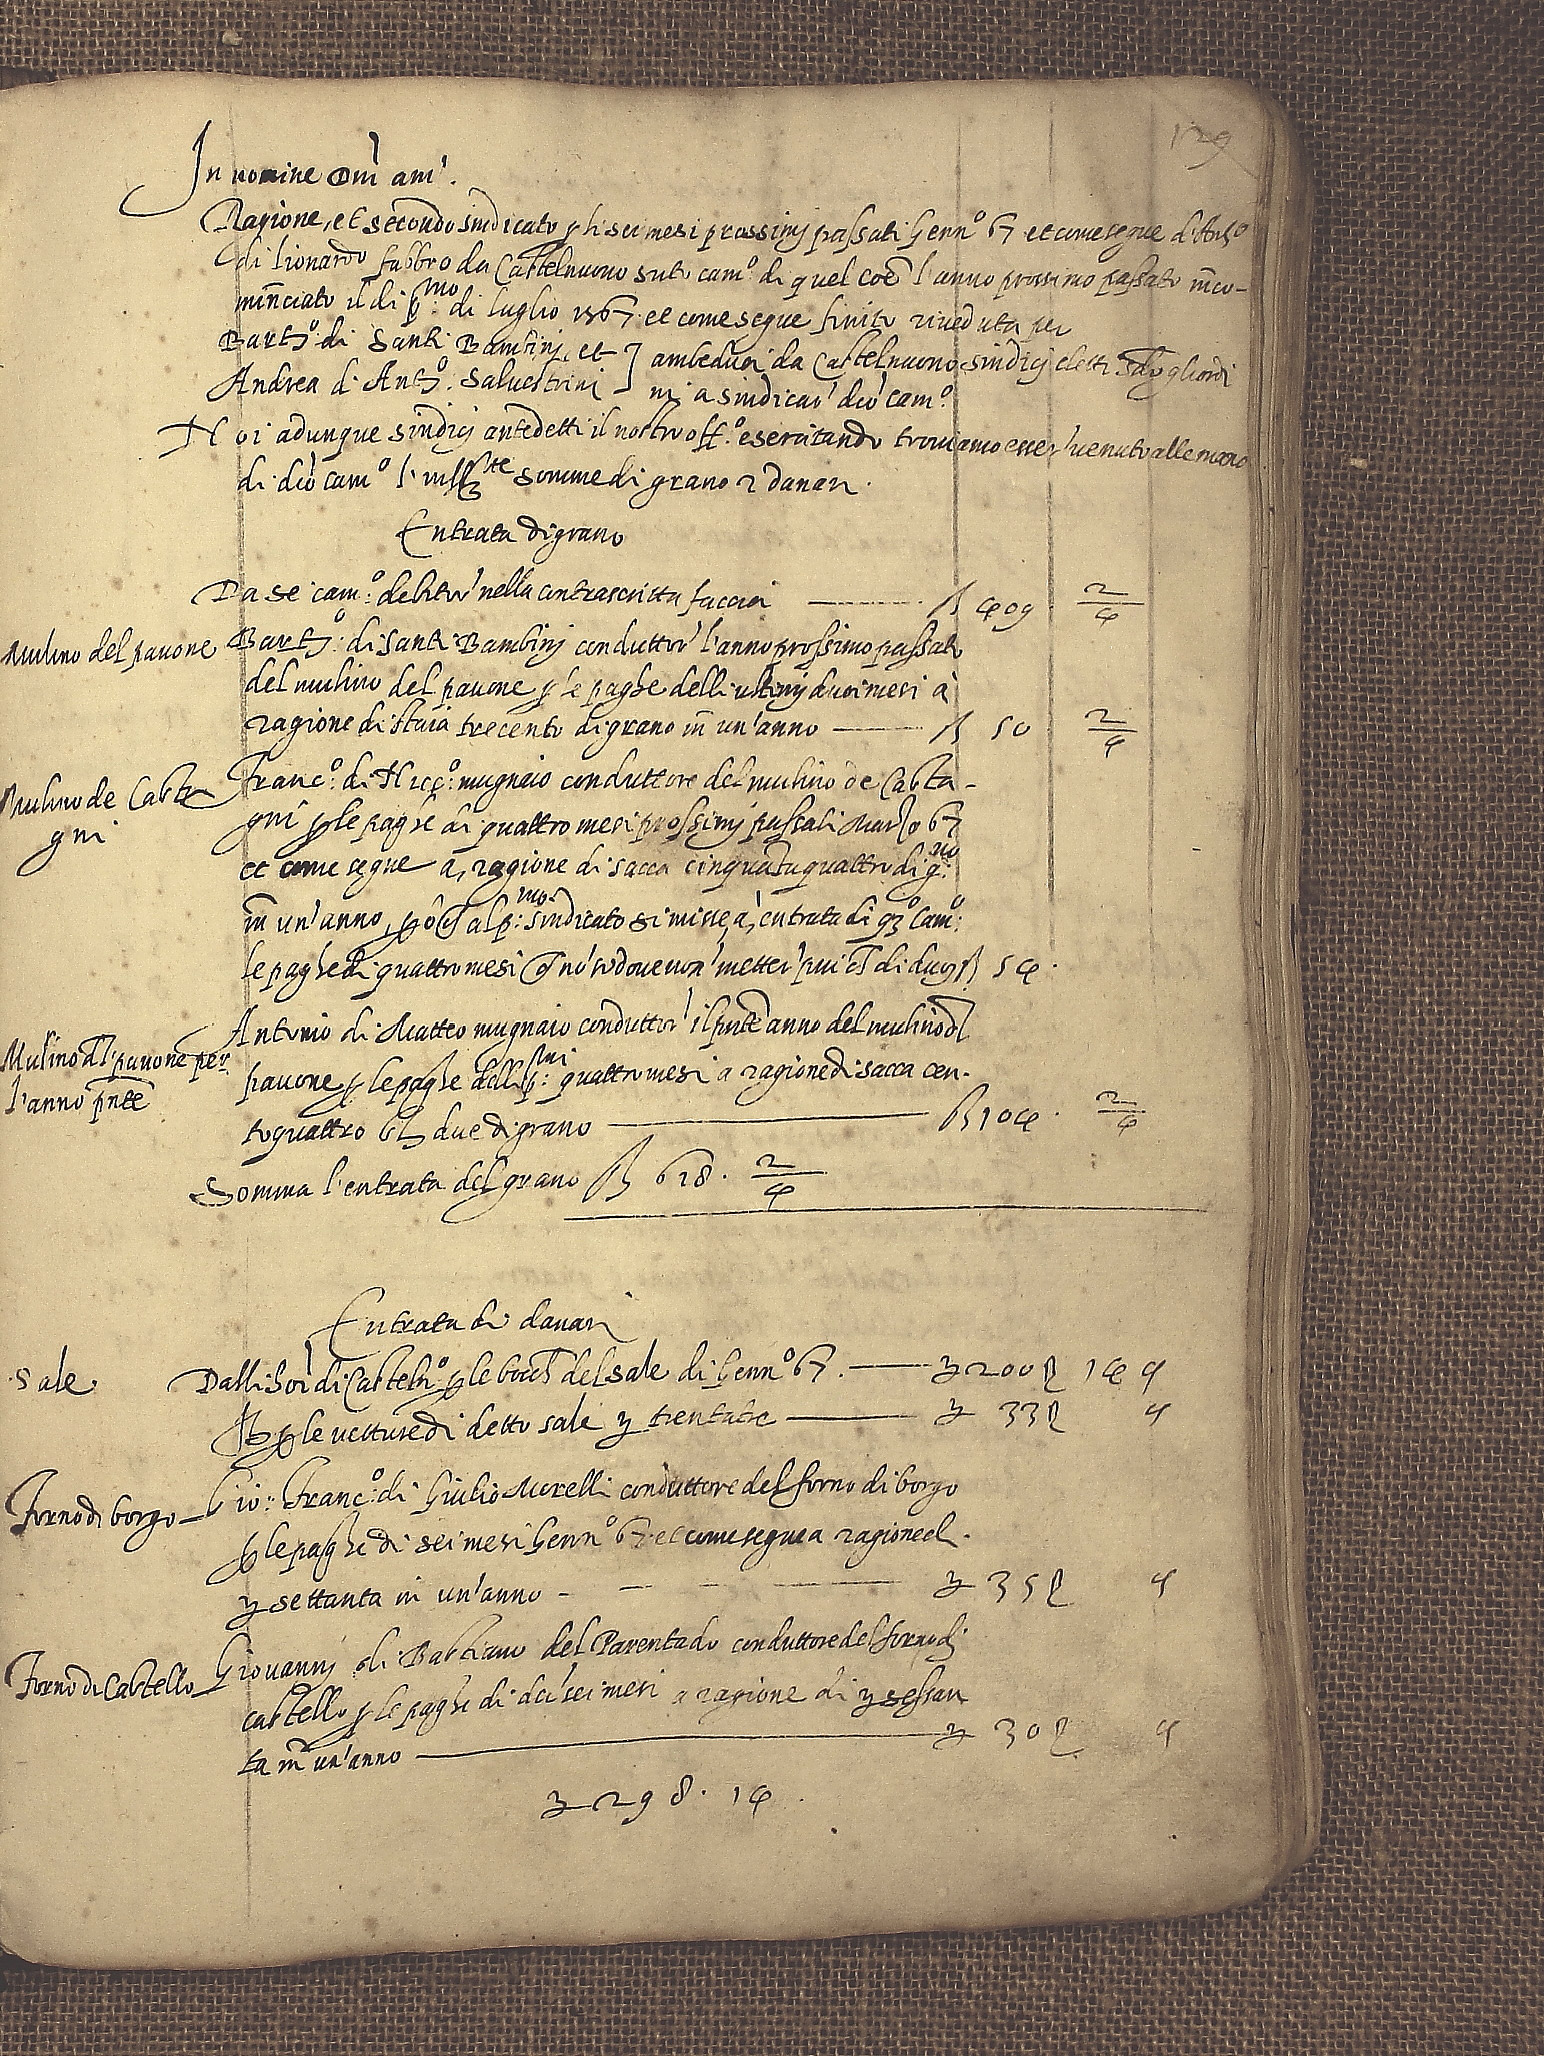 129
In nomine Dni am.
Ragione, et secondo sindicato p li sei mesi prossimj passati Genno 67 et come segue d'Anto
di Lionardo fabbro da Castelnuouo suto camo di quel coe l'anno prossimo passato inco-
minciato il di pmo: di luglio 1567. et come segue finito riueduta per
Barto: di Santi Bambinj, et ] ambeduoi da Castelnuouo sindicj eletti gliordi
Andrea di Anto. Saluestrini ] ni a sindicar' do camo.
Noi adunque sindicj antedetti il nostro offo. esercitando trouiamo esser' uenuto alle mano
di do camo l'infte somme di grano 2 danari.
Entrata di grano
Da se camo: debitor' nella contrascritta faccia ß 409 2/4
Mulino del pauone Barto: di Santi Bambinj conduttor' l'anno prossimo passato
del mulino del pauone p le paghe delli ultimj duoi mesi à
ragione di staia trecento di grano in un'anno ß 50 2/4
Mulino de Casta
gni
Franco: di Nicco: mugnaio conduttore del mulino de Casta-
gni p le paghe di quattro mesi prossimj passati Marzo 67
et come segue a, ragione di sacca cinquantaquattro di g:no
in un'anno, po al p:mo sindicato si misse, à, entrata di camo:
le paghe di quattro mesi non' metter' di duoj ß 54.
Mulino dl pauone per
l'anno pnte
Antonio di Matteo mugnaio conduttor' il pnte anno del mulino dl
pauone p le paghe delli p:mi quattro mesi a ragione di sacca cen-
toquattro due di grano ß 104. 2/4
Somma l'entrata del grano ß 618. 2/4
Entrata di danari
Sale Dalli di Castelno. p le del sale di Genno 67. ʒ 200 ß 14 4
E p le uetture di detto sale ʒ trentatre ʒ 33 ß 4
Forno di borgo Gio: Franco: di Giulio Morelli conduttore del forno di borgo
p le paghe di sei mesi Genno 67 et come segue a ragione d.
ʒ settanta in un'anno - ʒ 35 ß 4
Forno di Castello Giouannj di Bastiano del Parentado conduttore del forno dj
castello p le paghe di do sei mesi a ragione di ʒ sessan
ta in un'anno ʒ 30 ß 4
ʒ 298. 14.